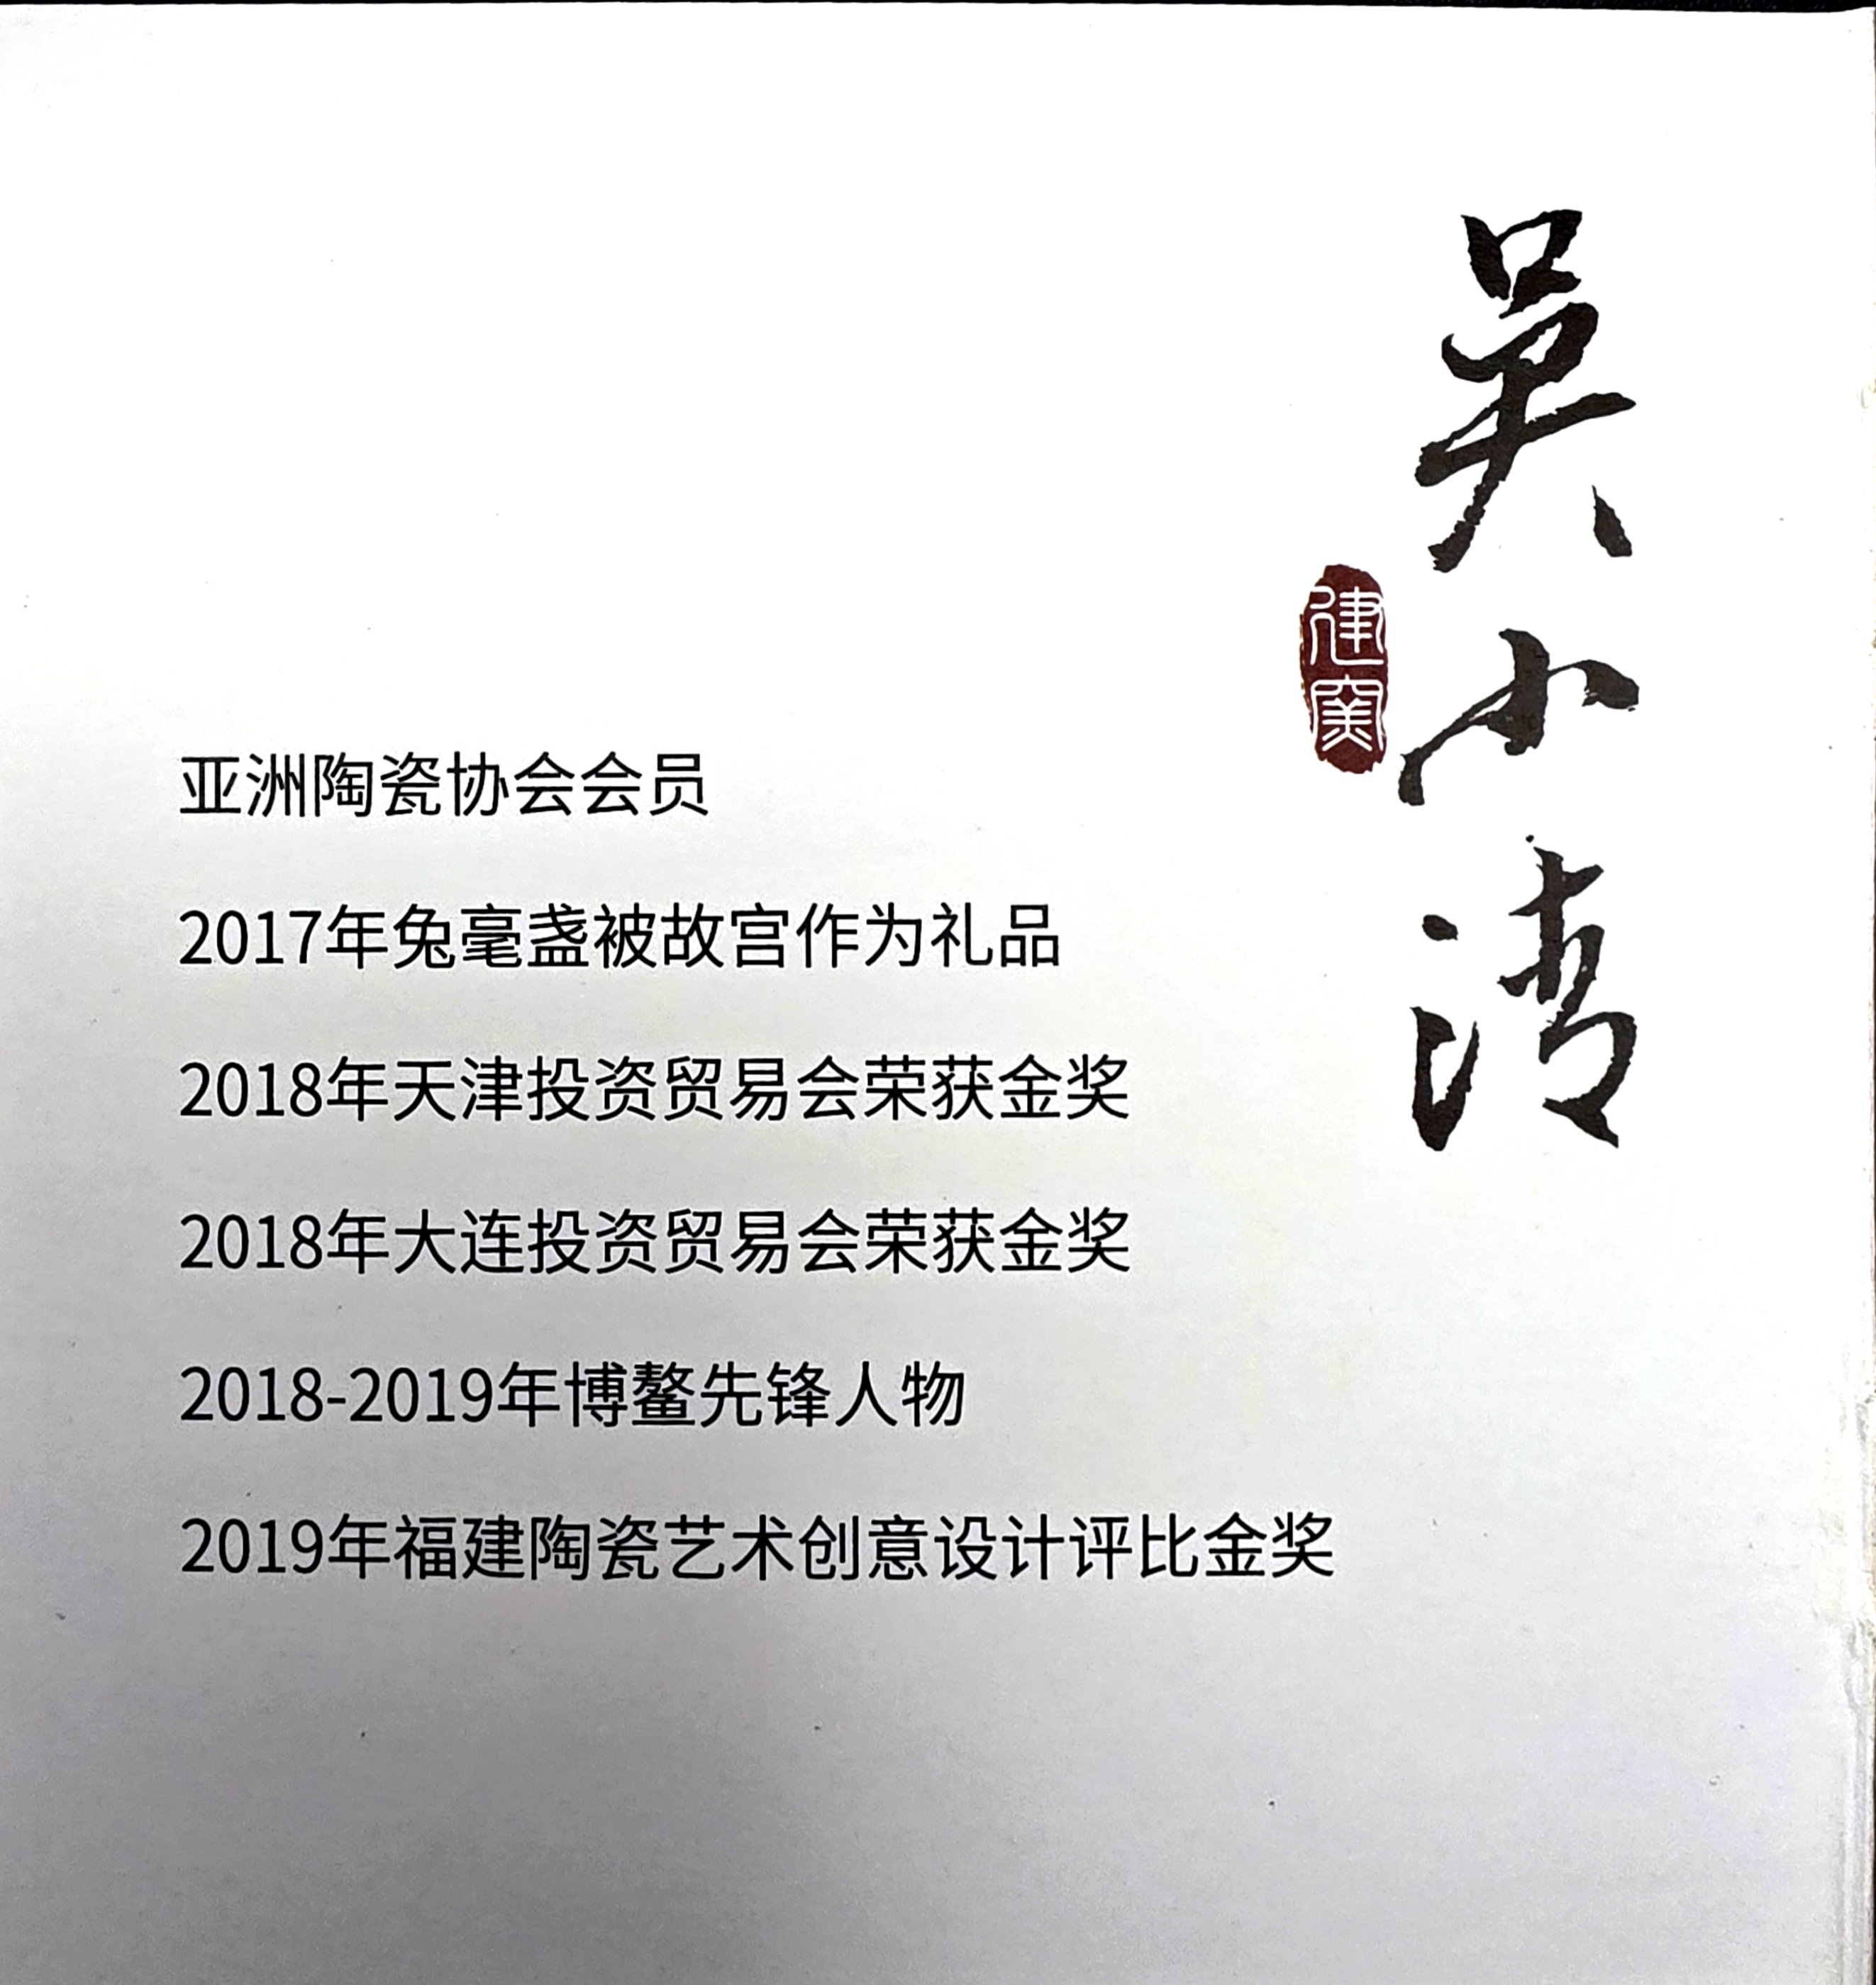 吴小清
建窑
亚洲陶瓷协会会员
2017年兔毫盏被故宫作为礼品
2018年天津投资贸易会荣获金奖
2018年大连投资贸易会荣获金奖
2018-2019年博鳌先锋人物
2019年福建陶瓷艺术创意设计评比金奖